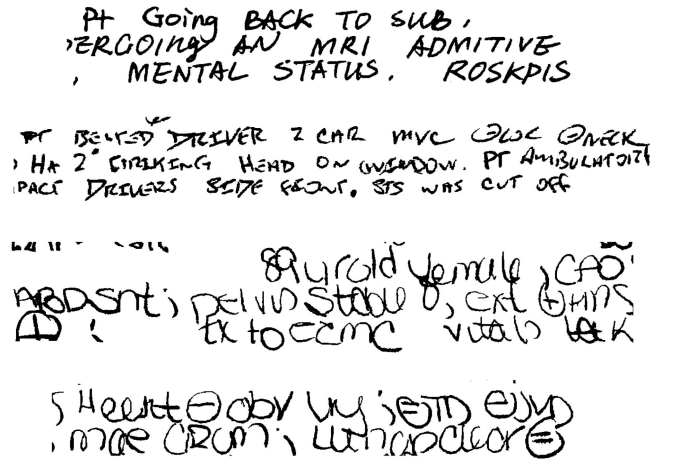 Pt Going BACK TO SUB.
ERGOING AN MRI ADMITIVE
, MENTAL STATUS. ROSKPIS
PT BELTED DRIVER 2 CAR MVC ⊖LOC ⊖NECK
HA 2° STRIKING HEAD ON WINDOW. PT AMBULATORY
PACT DRIVERS SIDE FRONT. STS WAS CUT OFF
89 yr old female, CAO
ABD Snt; pelvis Stable, ext ⊕HMS
TX to ECMC vitals
Heent ⊖ obv inj; ⊖TD ⊖jvd
; mae ; lungs clear ⊜